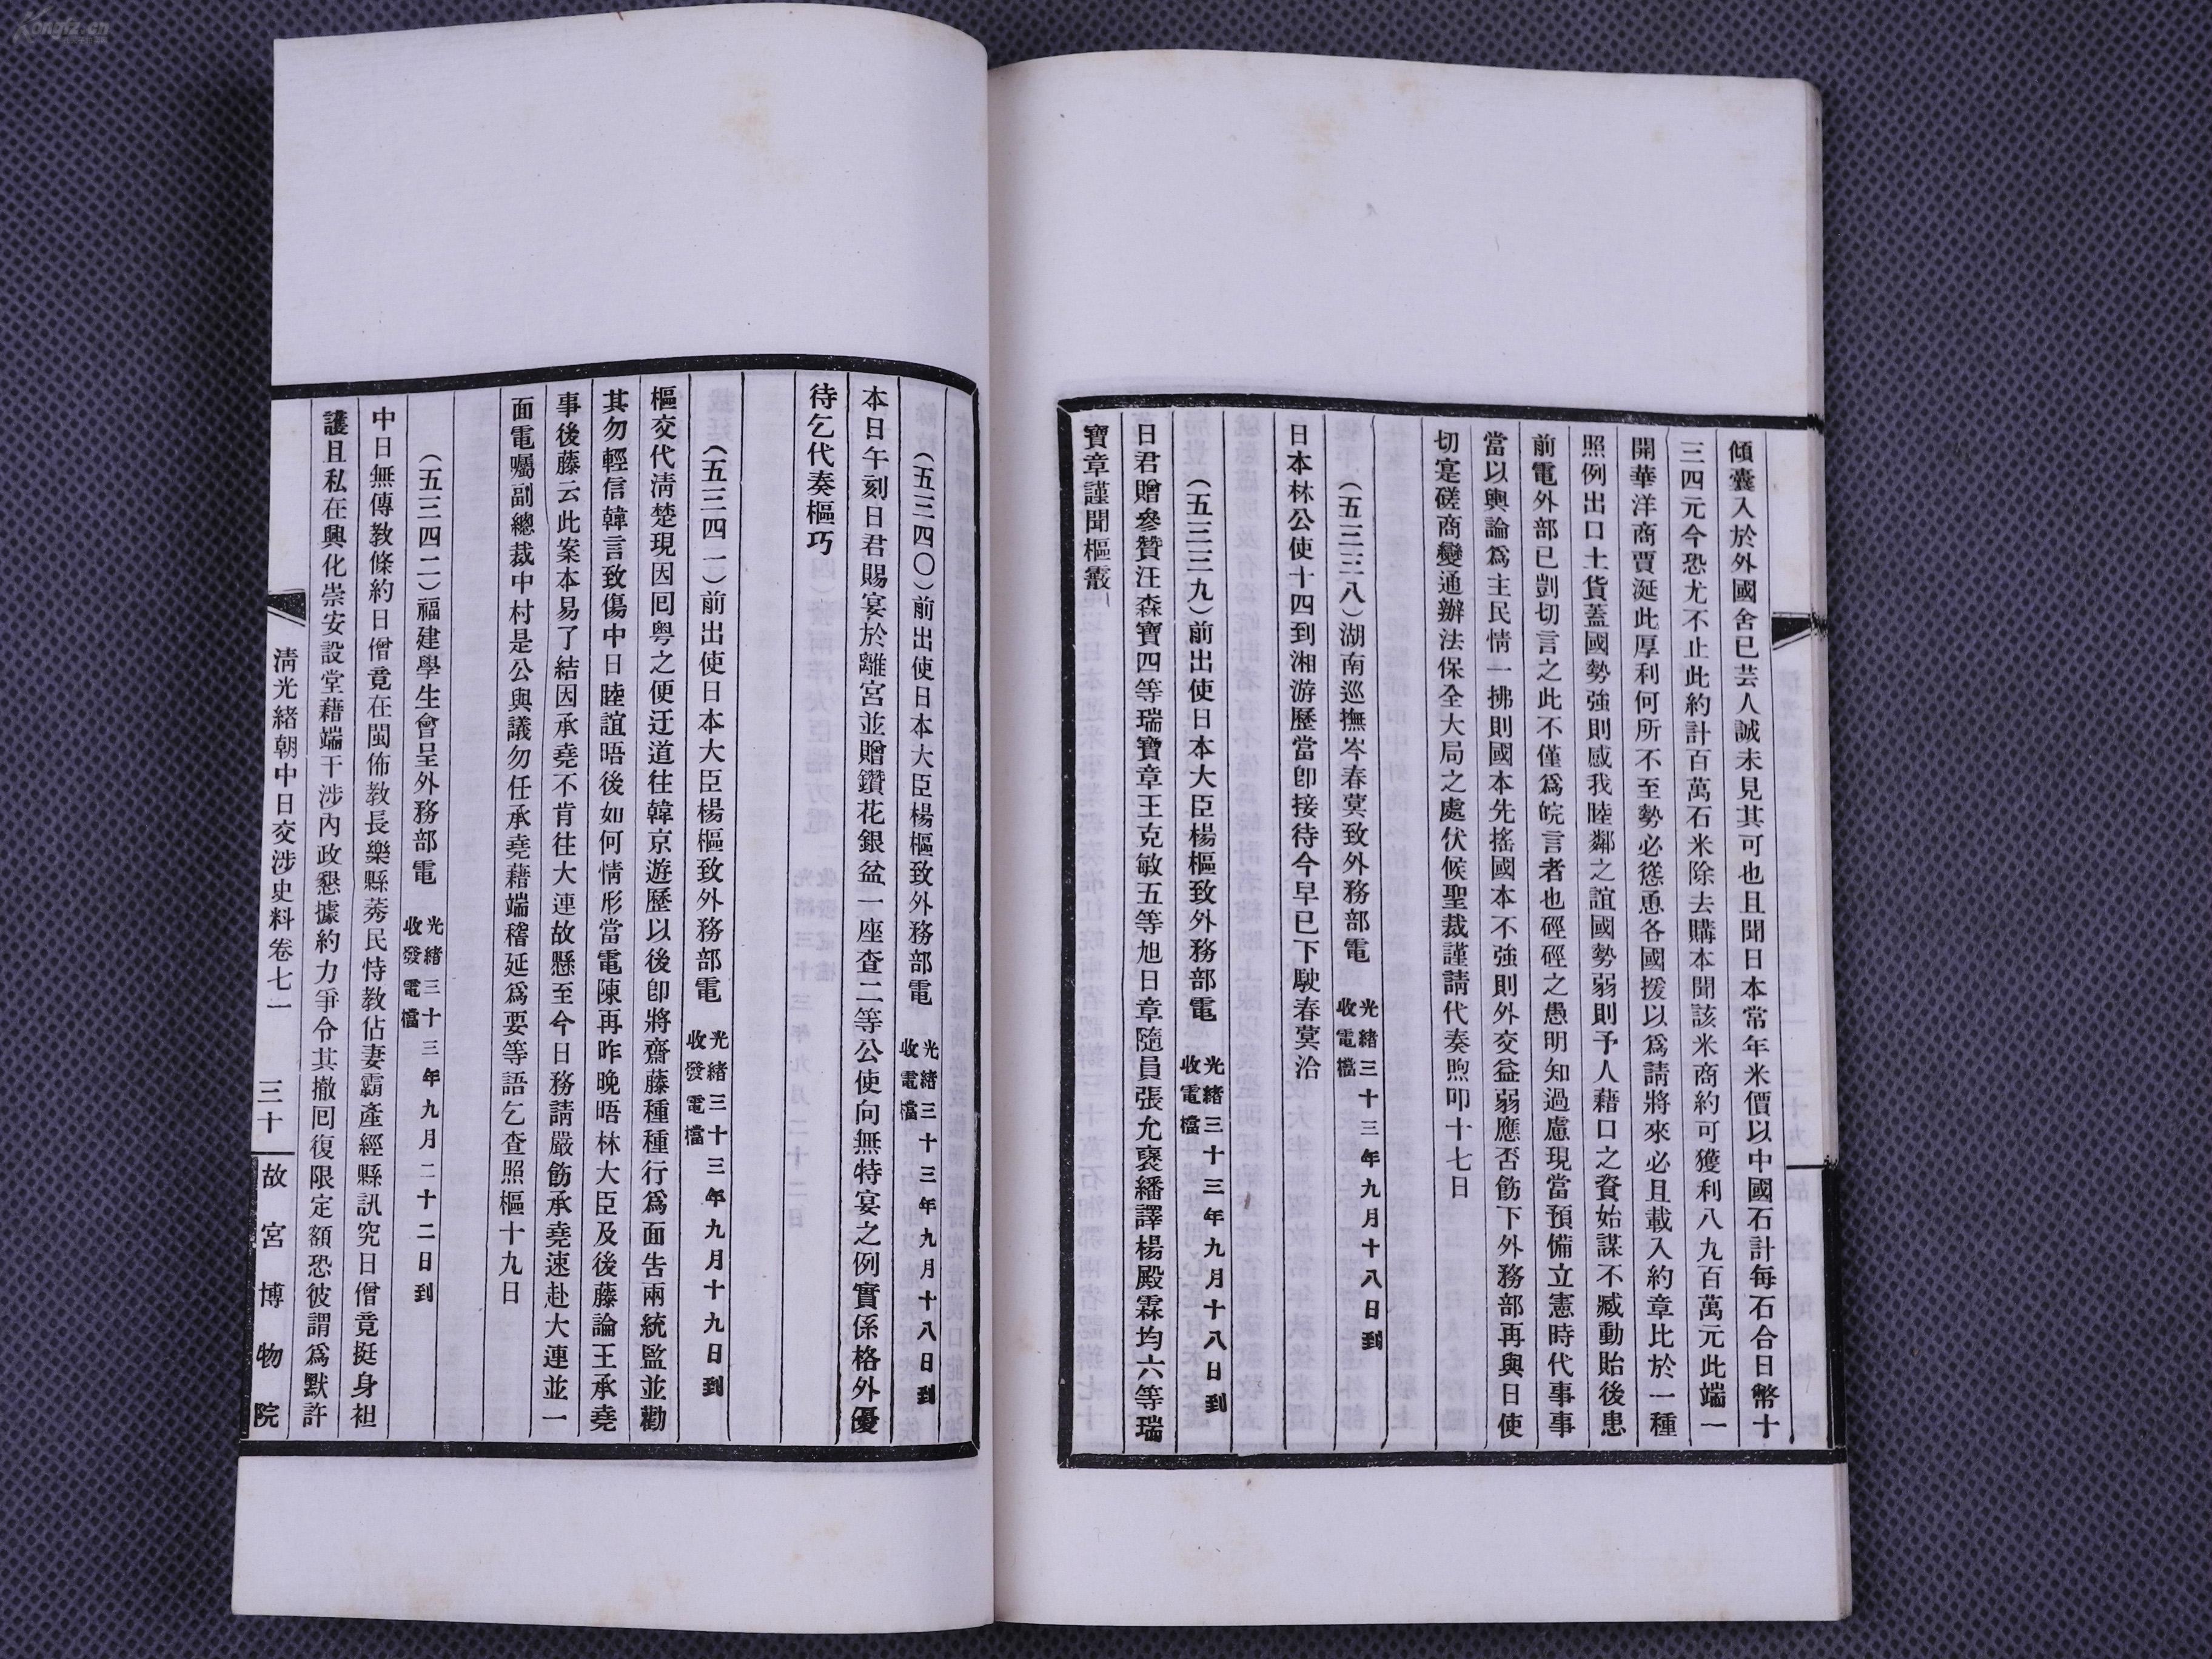 傾囊入於外國舍已芸人誠未見其可也且聞日本常年米價以中國石計每石合日幣十
三四元今恐尤不止此約計百萬石米除去購本聞該米商約可獲利八九百萬元此端一
開華洋商賈涎此厚利何所不至勢必慫恿各國援以爲請將來必且載入約章比於一種
照例出口土貨蓋國勢強則感我睦鄰之誼國勢弱則予人藉口之資始謀不臧動貽後患
前電外部已剴切言之此不僅爲皖言者也硜硜之愚明知過慮現當預備立憲時代事事
當以輿論爲主民情一拂則國本先搖國本不強則外交益弱應否飭下外務部再與日使
切寔磋商變通辦法保全大局之處伏候聖裁謹請代奏煦叩十七日
(五三三八)湖南巡撫岑春蓂致外務部電 光緒三十三年九月十八日到
收電檔
日本林公使十四到湘游歷當卽接待今早已下駛春蓂洽
(五三三九)前出使日本大臣楊樞致外務部電 光緒三十三年九月十八日到
收電檔
日君贈參贊汪森寶四等瑞寶章王克敏五等旭日章隨員張允褒繙譯楊殿霖均六等瑞
寶章謹聞樞霰
(五三四〇)前出使日本大臣楊樞致外務部電 光緒三十三年九月十八日到
收電檔
本日午刻日君賜宴於離宮並贈鑽花銀盆一座查二等公使向無特宴之例實係格外優
待乞代奏樞巧
(五三四一)前出使日本大臣楊樞致外務部電 光緒三十三年九月十九日到
收發電檔
樞交代清楚現因囘粤之便迂道往韓京遊歷以後卽將齋藤種種行爲面吿兩統監並勸
其勿輕信韓言致傷中日睦誼晤後如何情形當電陳再昨晚晤林大臣及後藤論王承堯
事後藤云此案本易了結因承堯不肯往大連故懸至今日務請嚴飭承堯速赴大連並一
面電囑副總裁中村是公與議勿任承堯藉端稽延爲要等語乞查照樞十九日
(五三四二)福建學生會呈外務部電 光緒三十三年九月二十二日到
收發電檔
中日無傳教條約日僧竟在閩佈教長樂縣莠民恃教佔妻霸產經縣訊究日僧竟挺身袒
護且私在興化崇安設堂藉端干涉內政懇據約力爭令其撤囘復限定額恐彼謂爲默許
清光緒朝中日交涉史料卷七一 三十 故宮博物院